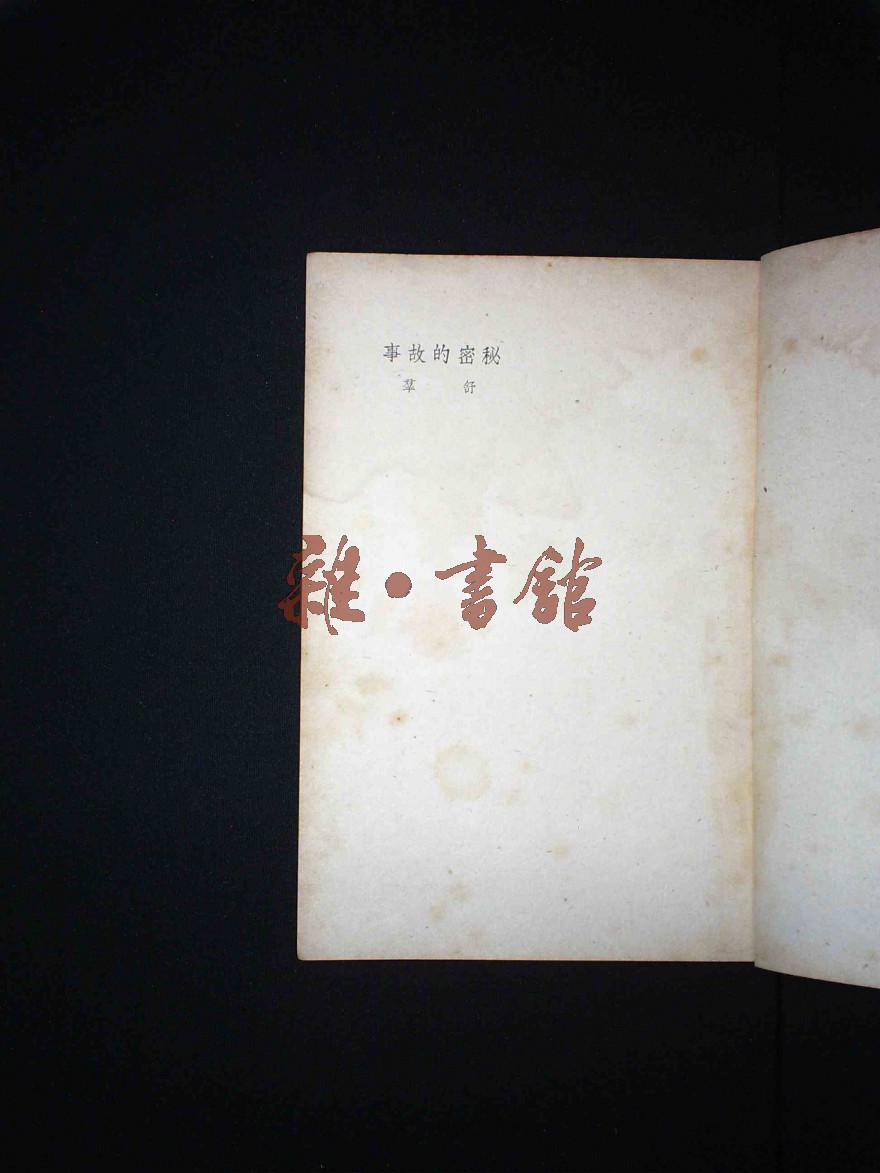 秘密的故事
舒羣
雜·書館